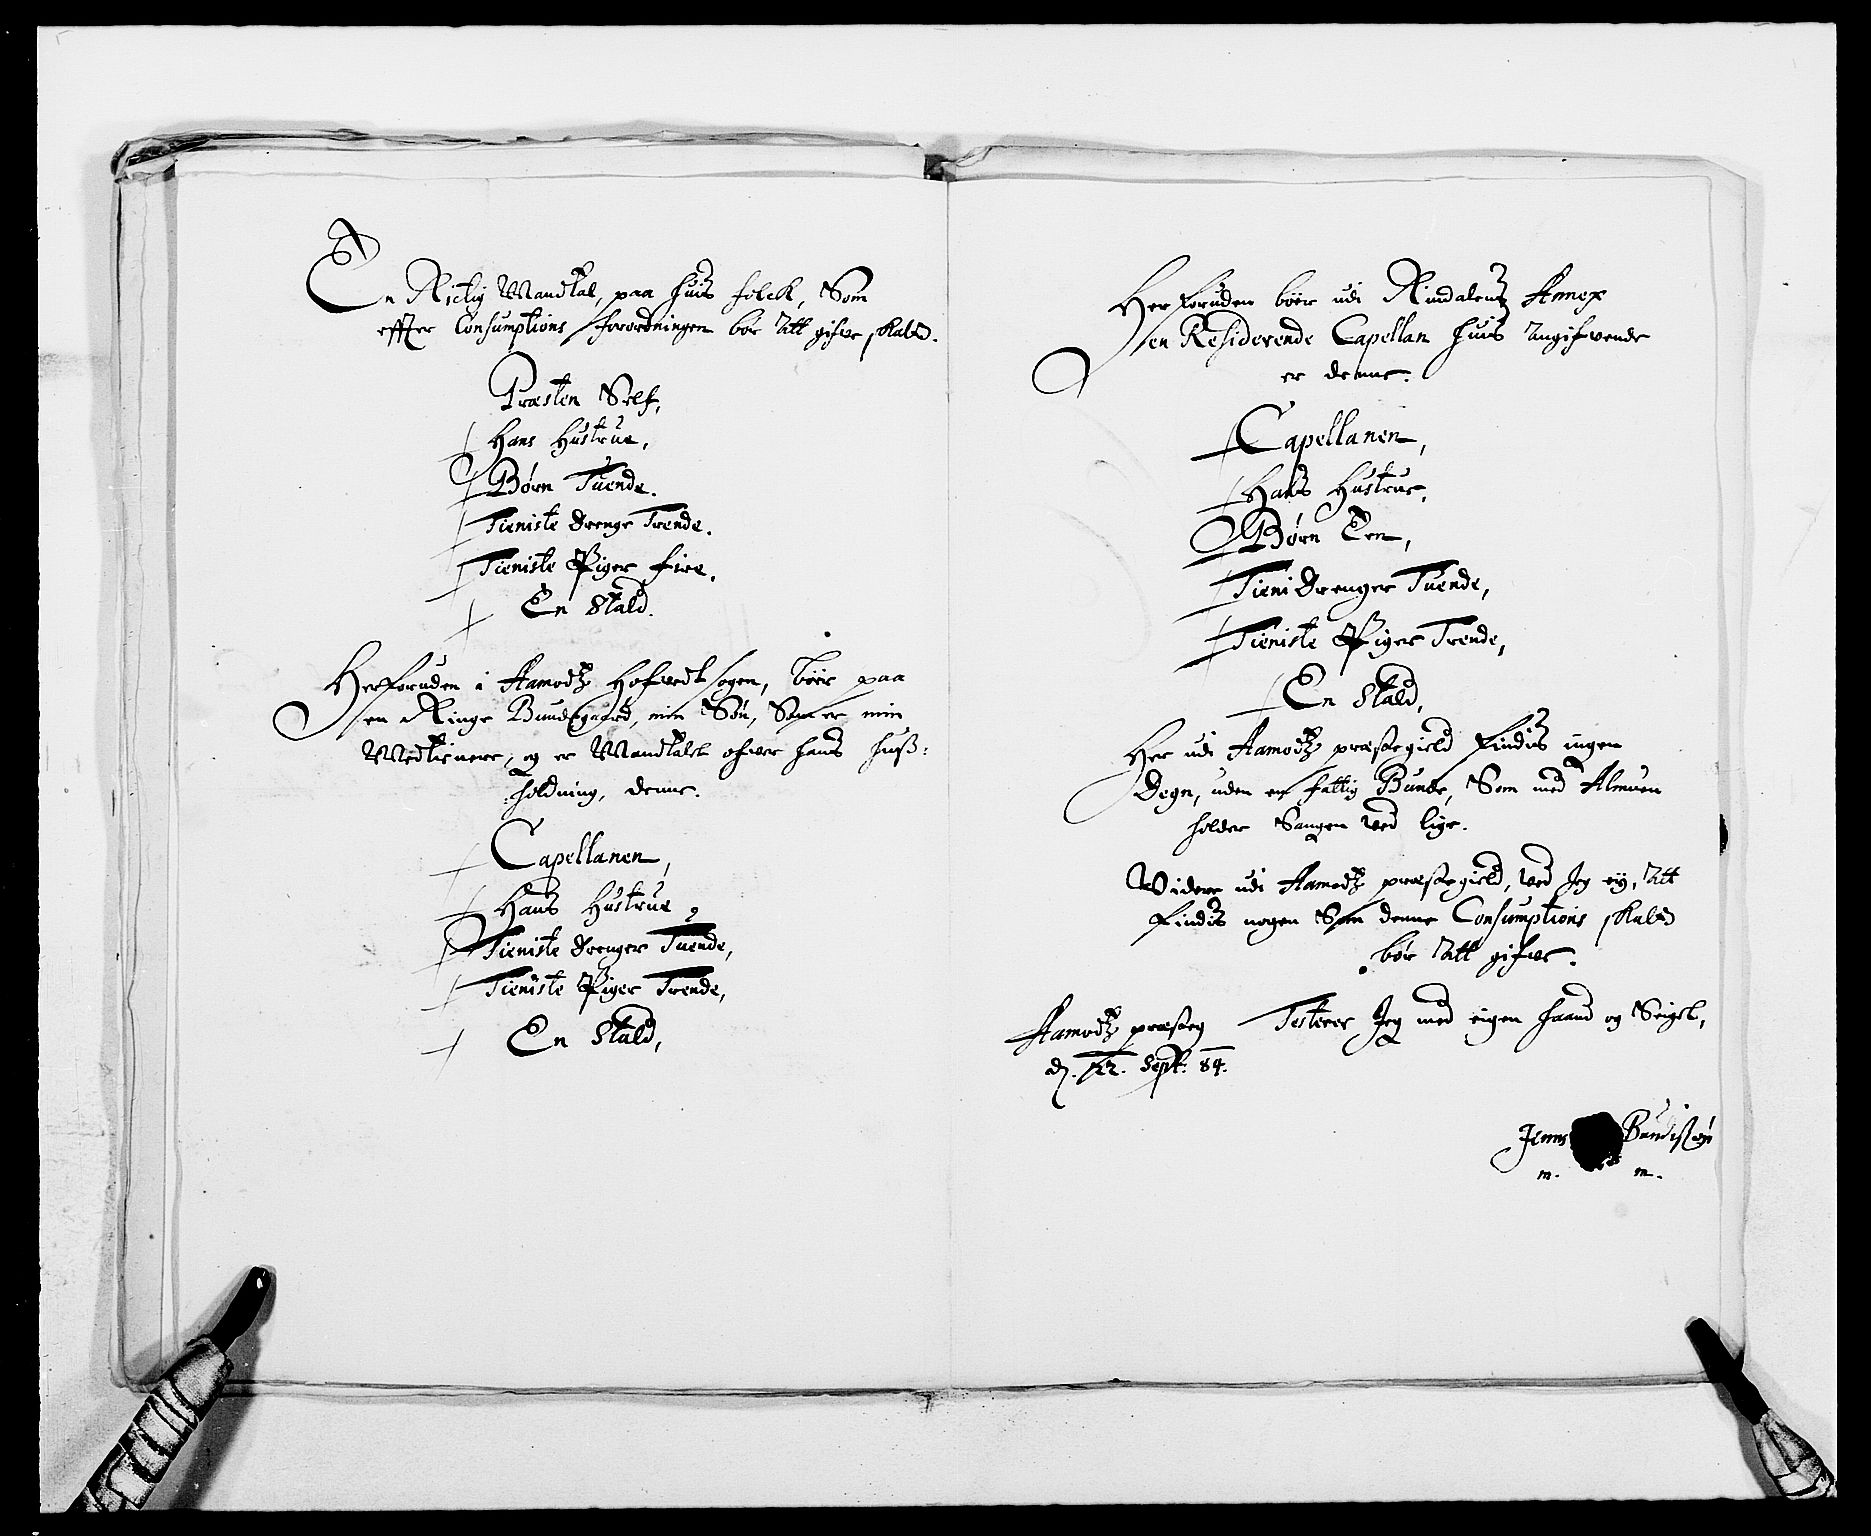 En Rictig Mandtal, paa huis folck, Som
effter Consumptions forordningen bör att gifve skatt.
Præsten Self,
Hans Hustrue,
Børn Tuende.
Tieniste drenge Trende.
Tieniste Piger fire.
En Stald.
Herforuden i Aamodtz Hofvedt sogen, böer paa
en Ringe Bundegaard, min Sön, Som er min
Medtienere, og er Mandtalet ofver hans huß:
holdning, denne.
Capellanen,
Hans Hustrue,
Tieniste drenger Tuende,
Tieniste Piger Trende,
En Stald,
Her foruden böer udi Rindalens Annex
en Residerende Capellan huis angifvende
er denne.
Capellanen,
Hans Hustrue,
Børn Een,
Tieni drenger Tuende,
Tieniste Piger Trende,
En Stald,
Her udi Aamodtz præstegield findis ingen
Degn, uden en fattig Bunde, Som med Almuen
holder Sangen ved lige.
Videre udi Aamodtz præstegield, ved Jeg ey, att
findis nogen Som denne Consumptions skatt
bör att gifve.
Aamodtz præsteg Testerer Jeg med eigen haand og Seigel,
d. 22. Sept: 84.
Jenns
m. m.